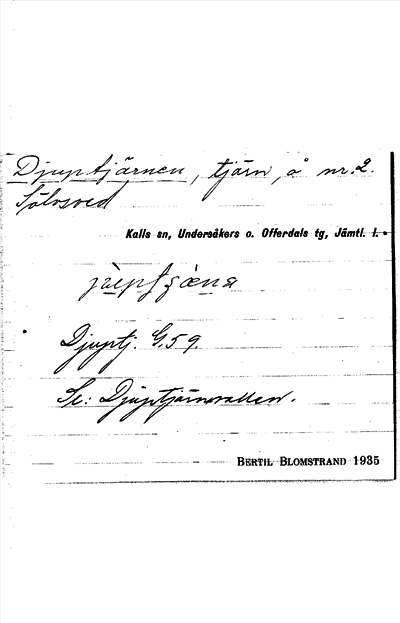 Djuptjärnen, tjärn, å nr. 2.
Sölvsved
Kalls sn, Undersåkers o. Offerdals tg, Jämtl. l.
Djuptj. G. 59.
Se: Djuptjärnvallen.
BERTIL BLOMSTRAND 1935